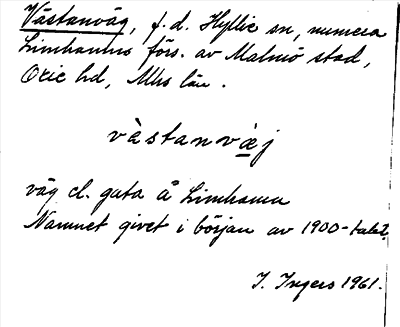 Västanväg, f.d. Hyllie sn, numera
Limhamns förs. av Malmö stad,
Oxie hd, Mhs län.
västanvæj
väg el. gata å Limhamn
Namnet givet i början av 1900-talet.
I. Ingers 1961.